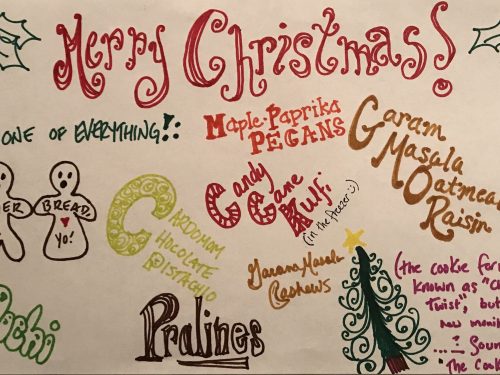 Merry Christmas!
ONE OF EVERYTHING!:
Maple-Paprika
PECANS
Garam
Masala
Oatmeal
Raisin
BREAD,
YO!
CARDOMOM
CHOCOLATE
PISTACHIO
Candy
Cane
Kulfi
(in the freezer :)
Garam Masala
Cashews
Pralines
(the cookie for
known as "C
Twist", but
new moni
...? Soun
The Cook